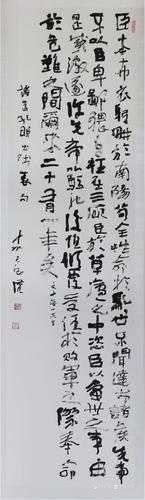 臣本布衣躬耕於南陽苟全性命於亂世不求聞達於諸侯先帝
不以臣卑鄙猥自枉屈三顧臣於草廬之中咨臣以當世之事由
是感激遂許先帝以驅馳後值傾覆受任於敗軍之際奉命
於危難之間爾來二十有一年矣
諸葛孔明出師表句